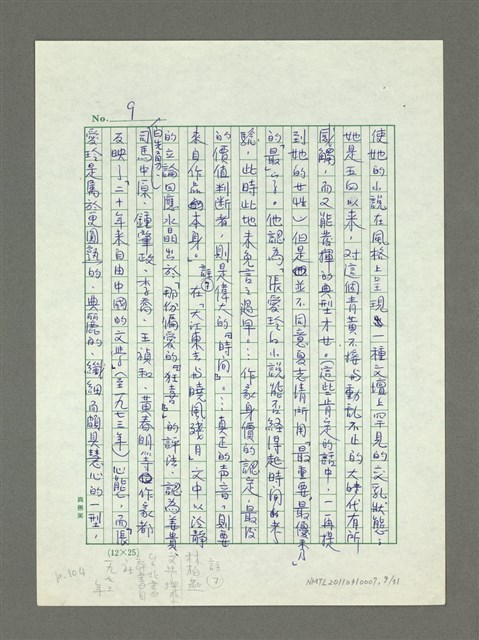 No. 9
使她的小說在風格上呈現一種文壇上罕見的交亂狀態;
她是五四以來,對這個青黃不接的動亂不止的大時代有所
感觸,而又能發揮的典型才女。(這些肯定的話中,一再提
到她的女性)但是他並不同意夏志清所用「最重要、最優秀」
的「最」字。他認為「張愛玲的小說能否經得起時間的考
驗,此時此地未免言之過早…作家身價的認定,最後
的價值判斷者,則是偉大的『時間』…真正的聲音,則要
來自作品的本身。」註⑦在「大江東去與曉風殘月」文中以冷靜
的立論回應水晶出於「那份偏愛的『狂喜』」的評法,認為姜貴、
白先勇、
司馬中原、鍾肇政、李喬、王禎和、黃春明等作家都
反映了二十年來自由中國的文學(至一九七三年)心態,而「張
愛玲是屬於更圓熟的、典麗的、纖細而頗具慧心的一型,
(12×25)
註⑦
林柏燕
文學探索
台北書評
書目
社
一九七三
年
p.104
NMTL20110410007, 9/31